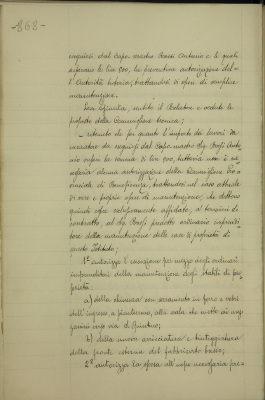 -868-
eseguiti dal Capo mastro Rossi Antonio e le quali
superano le lire 500, ha preventiva autorizzazione del-
l'Autorità tutoria, trattandosi di opere di semplice
manutenzione.
La Giunta, sentito il Relatore e vedute le
proposte della Commissione tecnica;
ritenuto che per quanto l'importo dei lavori da
muratore da eseguirsi dal Capo mastro Sig. Rossi Anto-
nio superi la somma di lire 500, tuttavia non è ne-
cessaria alcuna autorizzazione della Commissione Pro-
vinciale di Beneficenza, trattandosi nel caso attuale
di vere e proprie opere di manutenzione, che debbono
quindi essere affidate, ai termini di
contratto, al Sig. Rossi perchè ordinario imprendi-
tore della manutenzione delle case di proprietà di
questo Istituto;
1° autorizza l'esecuzione per mezzo degli ordinari
imprenditori della manutenzione degli stabili di pro-
prietà:
a) della chiusura con serramento in ferro e vetri
dell'ingresso a pianterreno, alla scala che mette ai mez-
zanini verso via di
b) della nuova arricciatura e tinteggiatura
della fronte esterna del fabbricato basso;
2° autorizza la spesa all'uopo necessaria per-